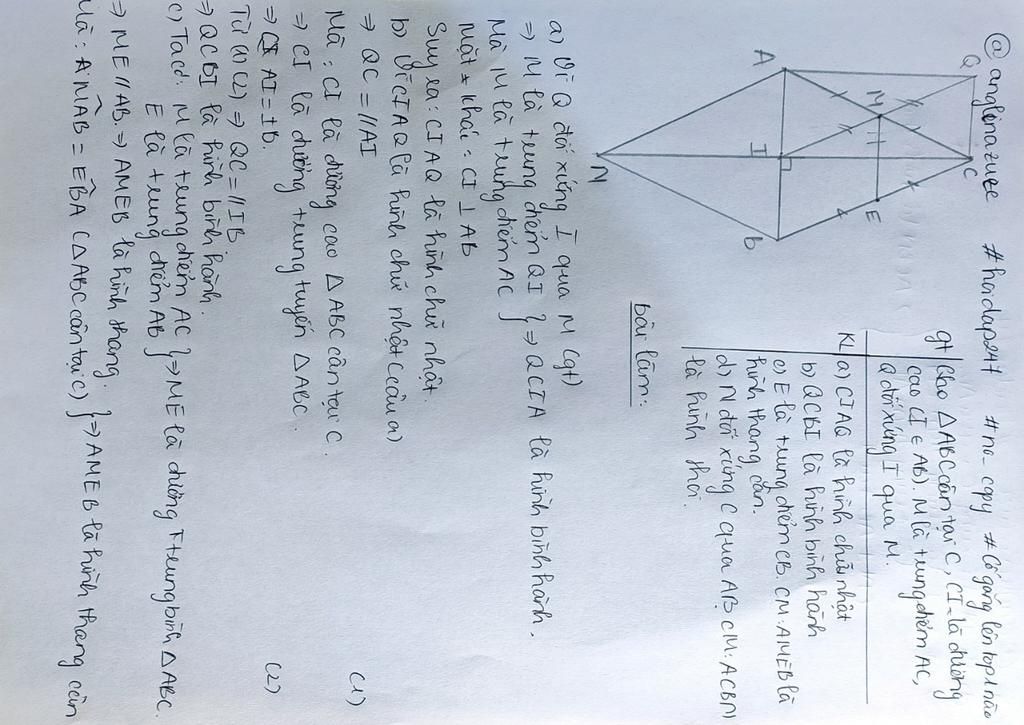 @anglinazuee #hoidap247 #no_copy #Cố gắng lên top1 nào
Q
A
M
I
C
E
B
N
gt Cho △ABC cân tại C, CI là đường
cao CI ∈ AB). M là trung điểm AC,
Q đối xứng I qua M.
KL a) CIAQ là hình chữ nhật
b) QCBI là hình bình hành
c) E là trung điểm CB. CM: AMEB là
hình thang cân.
d) N đối xứng C qua AB CM: ACBN
là hình thoi.
bài làm:
a) Vì Q đối xứng I qua M (gt)
⇒ M là trung điểm QI } ⇒ QCIA là hình bình hành.
Mà M là trung điểm AC
Mặt ≠ khác: CI ⊥ AB
Suy ra: CIAQ là hình chữ nhật
b) Vì CIAQ là hình chữ nhật (câu a)
⇒ QC =// AI (1)
Mà: CI là đường cao △ABC cân tại C.
⇒ CI là đường trung tuyến △ABC.
⇒ AI = IB. (2)
Từ (1) (2) ⇒ QC =// IB
⇒ QCBI là hình bình hành.
c) Ta có: M là trung điểm AC } ⇒ ME là đường trung bình △ABC.
E là trung điểm AB
⇒ ME // AB. ⇒ AMEB là hình thang.
Mà: MAB = EBA (△ABC cân tại C) } ⇒ AMEB là hình thang cân